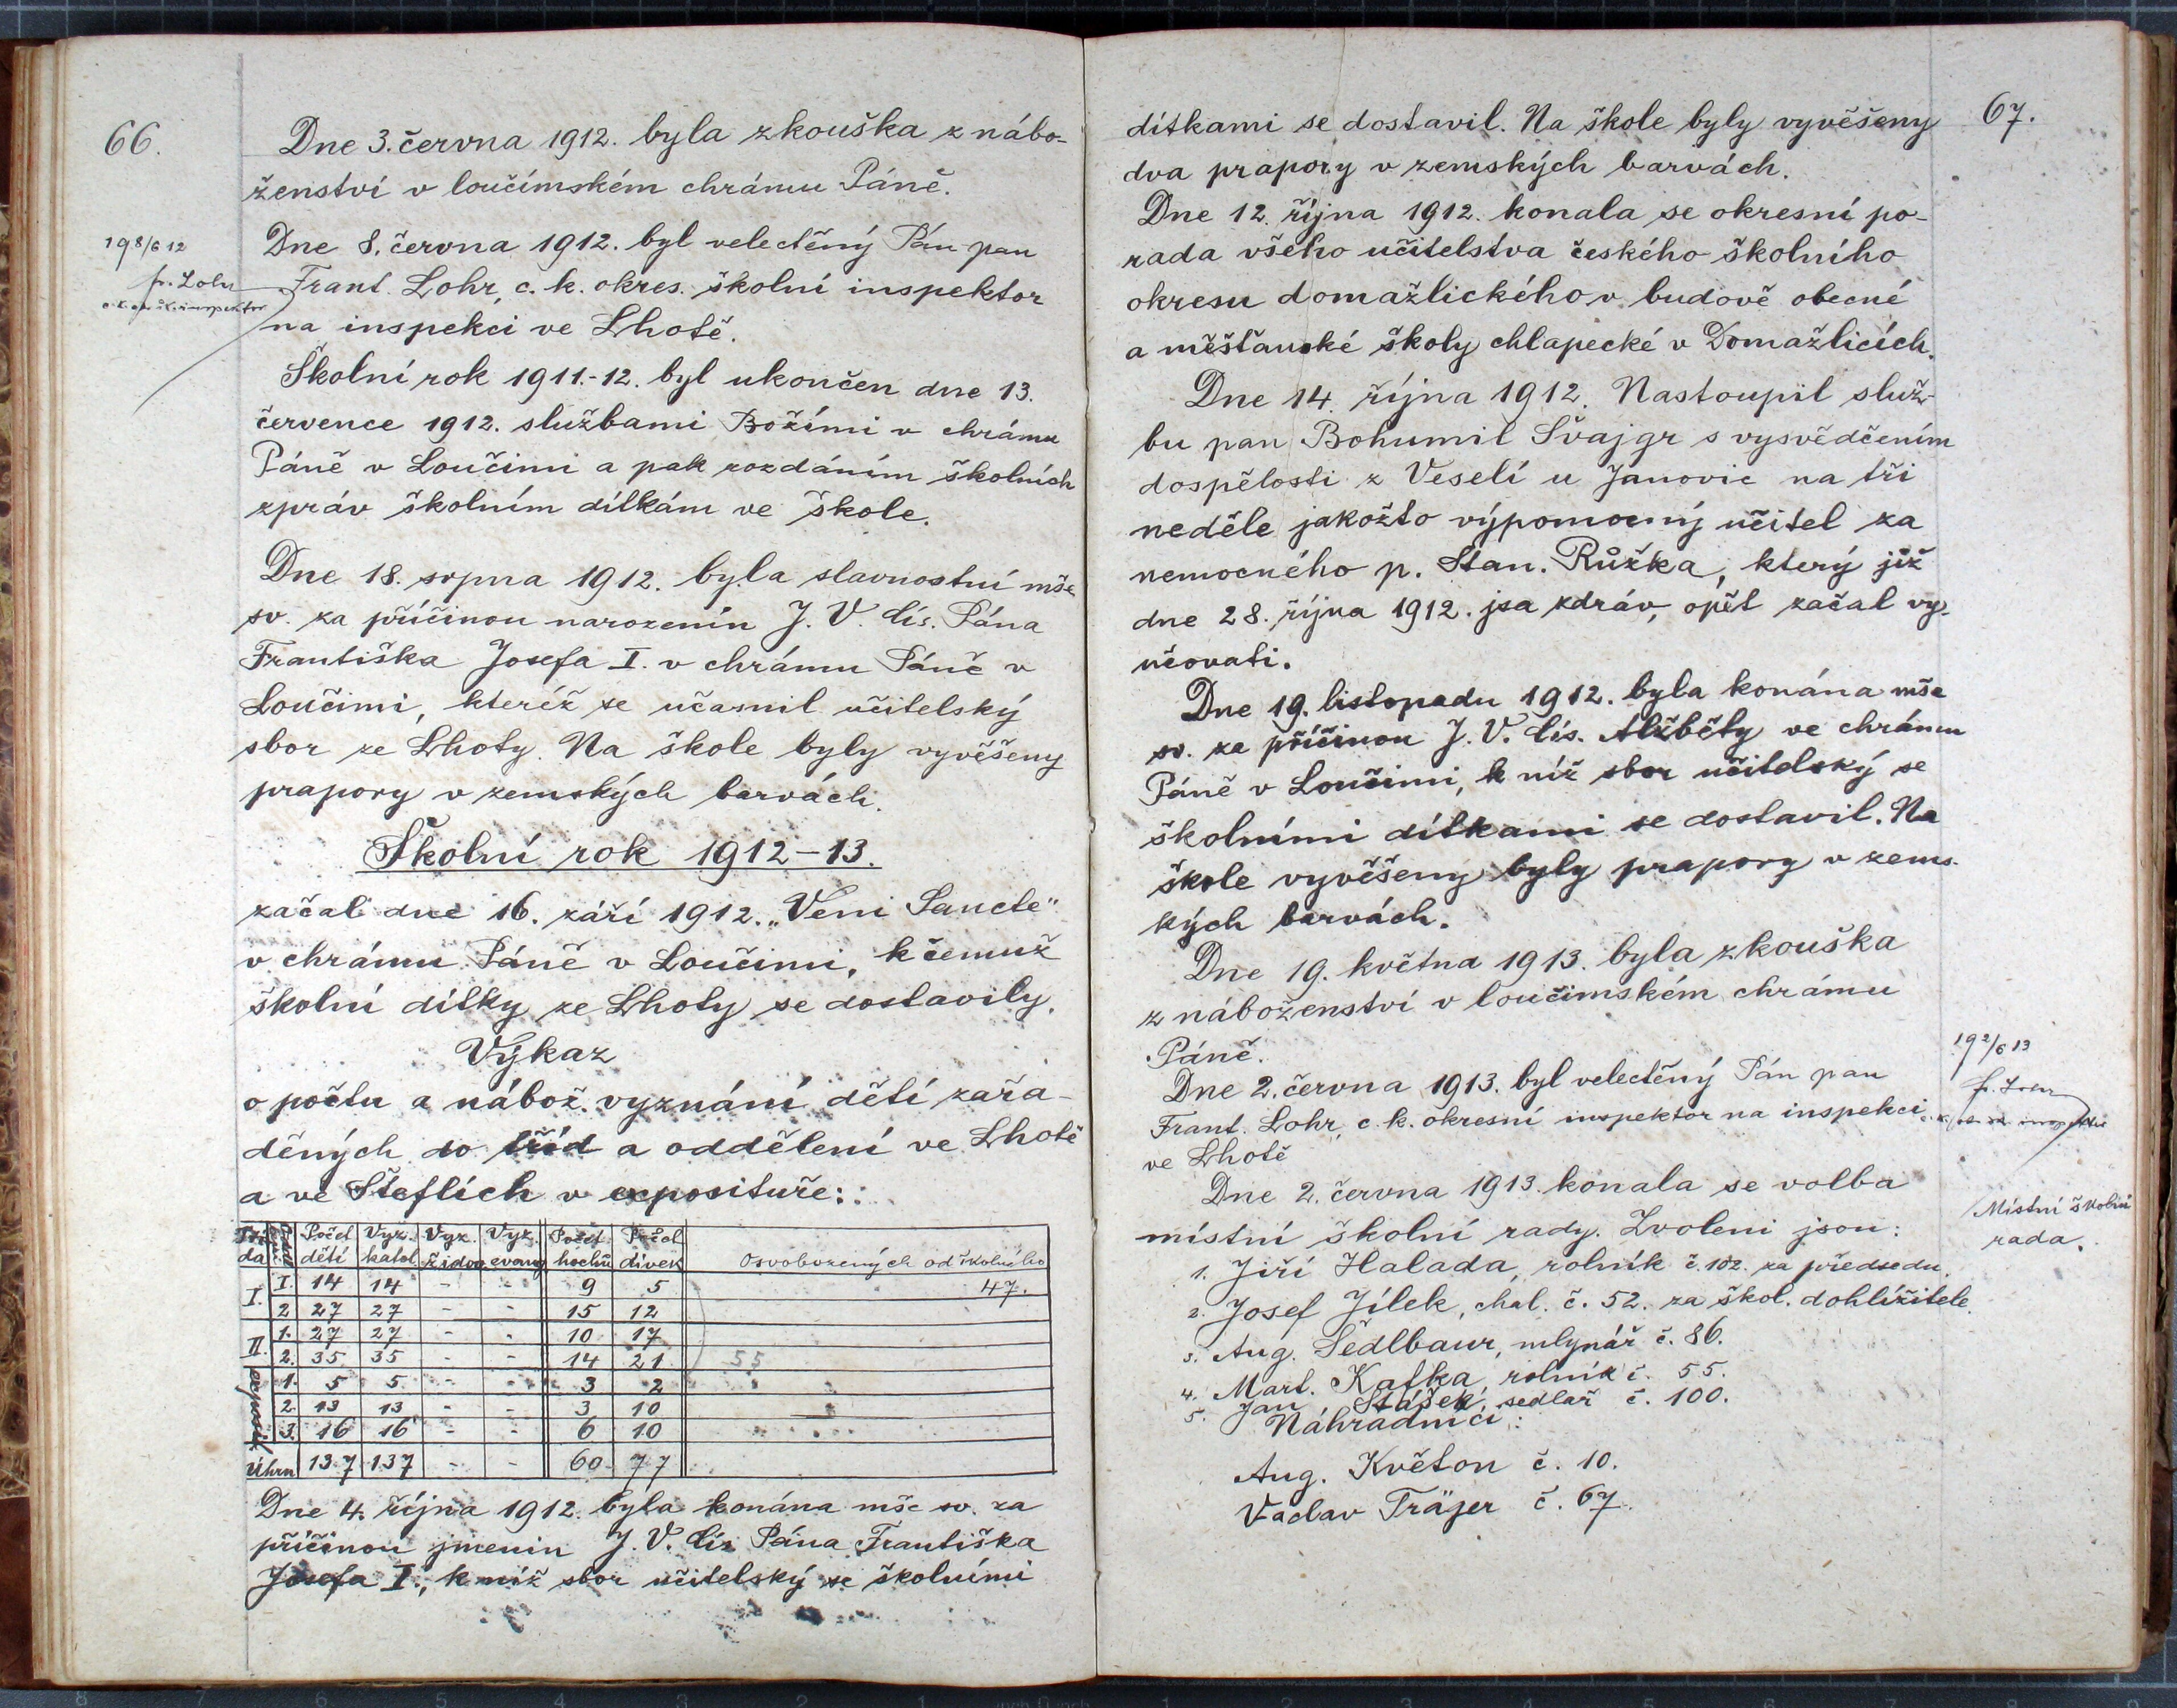 66.
Dne 3. června 1912. byla zkouška z nábo-
ženství v loučimském chrámu Páně.
19 8/6 12
Dne 8. června 1912. byl velectěný Pán pan
fr. Lohr
Frant. Lohr, c. k. okres. školní inspektor
na inspekci ve Lhotě.
Školní rok 1911.-12. byl ukončen dne 13.
července 1912. službami Božími v chrámu
Páně v Loučimi a pak rozdáním školních
zpráv školním dítkám ve škole.
Dne 18. srpna 1912. byla slavnostní mše
sv. za příčinou narozenin J. V. cís. Pána
Františka Josefa I. v chrámu Páně v
Loučimi, kteréž se účasnil učitelský
sbor ze Lhoty. Na škole byly vyvěšeny
prapory v zemských barvách.
Školní rok 1912-13.
začal dne 16. září 1912. „Veni Sancte"
v chrámu Páně v Loučimi, k čemuž
školní dítky ze Lhoty se dostavily.
Výkaz
o počtu a nábož. vyznání dětí zařa-
děných do tříd a oddělení ve Lhotě
a ve Šteflích v exposituře:
Tří da Počet dětí Vyz. katol Vyz. židov Vyz. evang Počet hochů Počet dívek Osvobozených od školného
I. I. 14 14 - - 9 5 47.
2 27 27 - - 15 12
II. 1. 27 27 - - 10 17
2. 35 35 - - 14 21 55
exposit. 1. 5 5 - - 3 2
2 13 13 - - 3 10
3. 16 16 - - 6 10
Úhrn 137 137 - - 60 77
Dne 4. října 1912. byla konána mše sv. za
příčinou jmenin J. V. cís Pána Františka
Josefa I., k níž sbor učitelský se školními
67.
dítkami se dostavil. Na škole byly vyvěšeny
dva prapory v zemských barvách.
Dne 12. října 1912. konala se okresní po-
rada všeho učitelstva českého školního
okresu domažlického v budově obecné
a měšťanské školy chlapecké v Domažlicích.
Dne 14. října 1912. Nastoupil služ-
bu pan Bohumil Švajgr s vysvědčením
dospělosti z Veselí u Janovic na tři
neděle jakožto výpomocný učitel za
nemocného p. Stan. Růžka, který již
dne 28. října 1912. jsa zdráv, opět začal vy-
učovati.
Dne 19. listopadu 1912. byla konána mše
sv. za příčinou J. V. cís. Alžběty ve chrámu
Páně v Loučimi, k níž sbor učitelský se
školními dítkami se dostavil. Na
škole vyvěšeny byly prapory v zems-
kých barvách.
Dne 19. května 1913. byla zkouška
z náboženství v loučimském chrámu
Páně.
19 2/6 13
Dne 2. června 1913. byl velectěný Pán pan
fr. Lohr
Frant. Lohr, c. k. okresní inspektor na inspekci
ve Lhotě
Dne 2. června 1913. konala se volba
Místní školní
rada.
místní školní rady. Zvoleni jsou:
1. Jiří Halada, rolník č. 102. za předsedu.
2. Josef Jílek, chal. č. 52. za škol. dohlížitele.
3. Aug. Šedlbaur, mlynář č. 86.
4. Mart. Kafka, rolník č. 55.
5. Jan Stašek, sedlař č. 100.
Náhradníci:
Aug. Květon č. 10.
Václav Träjer č. 67.